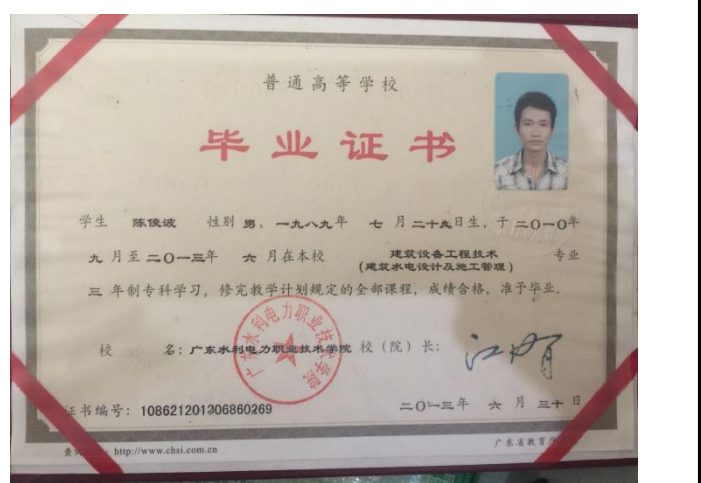 普通高等学校
毕业证书
学生 陈俊波 性别 男，一九八九年 七 月二十九日生，于二〇一〇年
九 月至二〇一三年 六 月在本校 建筑设备工程技术 专业
(建筑水电设计及施工管理)
三 年制专科学习，修完教学计划规定的全部课程，成绩合格，准予毕业。
校 名：广东水利电力职业技术学院 校（院）长：
广东水利电力职业技术学院
证书编号：108621201306860269 二〇一三年 六 月 三十 日
http://www.chsi.com.cn 广东省教育厅